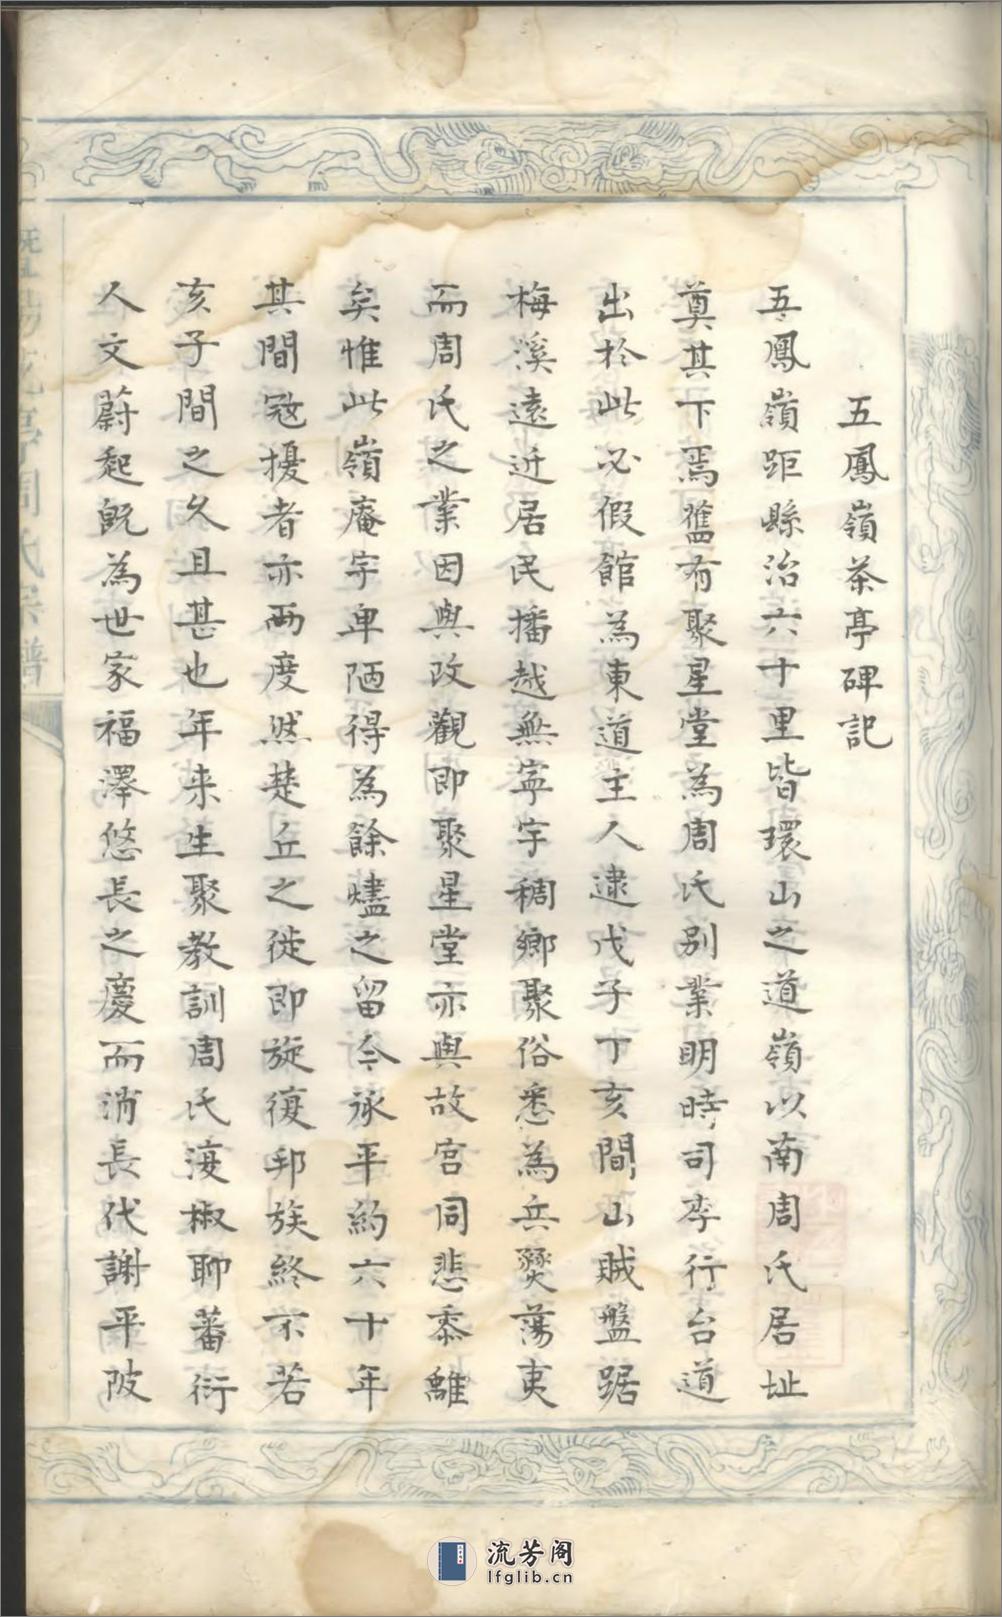 五鳳嶺茶亭碑記
五鳳嶺距縣治六十里皆環山之道嶺以南周氏居址
奠其下焉舊有聚星堂為周氏别業明時司李行台道
出於此必假館為東道主人逮戊子丁亥間山賊盤踞
梅溪遠近居民播越無寧宇稠鄉聚俗悉為兵燹蕩夷
而周氏之業因與改觀即聚星堂亦與故宫同悲黍離
矣惟此嶺庵宇卑陋得為餘燼之留今承平約六十年
其間寇擾者亦兩度然楚丘之徙即旋復邦族終不若
亥子間之久且甚也年来生聚教訓周氏海椒聊蕃衍
人文蔚起既為世家福澤悠長之慶而消長代謝平陂
亭周氏宗譜
流芳阁
lfglib.cn